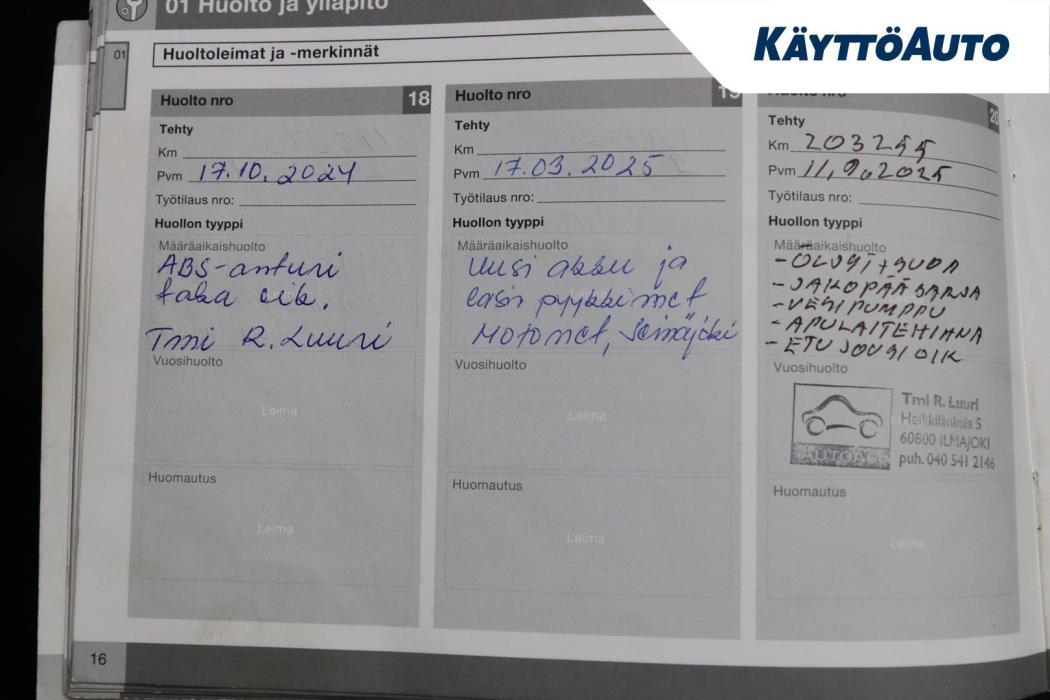 01 Huolto ja ylläpito
KÄYTTÖAUTO
01
Huoltoleimat ja -merkinnät
Huolto nro 18
Tehty
Km
Pvm 17.10.2024
Työtilaus nro:
Huollon tyyppi
Määräaikaishuolto
ABS-anturi
taka oik.
Tmi R. Luuri
Vuosihuolto
Leima
Huomautus
Leima
Huolto nro 19
Tehty
Km
Pvm 17.03.2025
Työtilaus nro:
Huollon tyyppi
Määräaikaishuolto
Uusi akku ja
lasin pyyhkimet
Motonet, Seinäjoki
Vuosihuolto
Leima
Huomautus
Leima
Huolto nro 20
Tehty
Km 203255
Pvm 11.9.2025
Työtilaus nro:
Huollon tyyppi
Määräaikaishuolto
- ÖLJYT + SUOD
- JAKOPÄÄ SARJA
- VESIPUMPPU
- APULAITEHIHNA
- ETU JOUSI OIK
Vuosihuolto
Tmi R. Luuri
Heikkilänkuja 5
60800 ILMAJOKI
puh. 040 541 2146
Huomautus
Leima
16